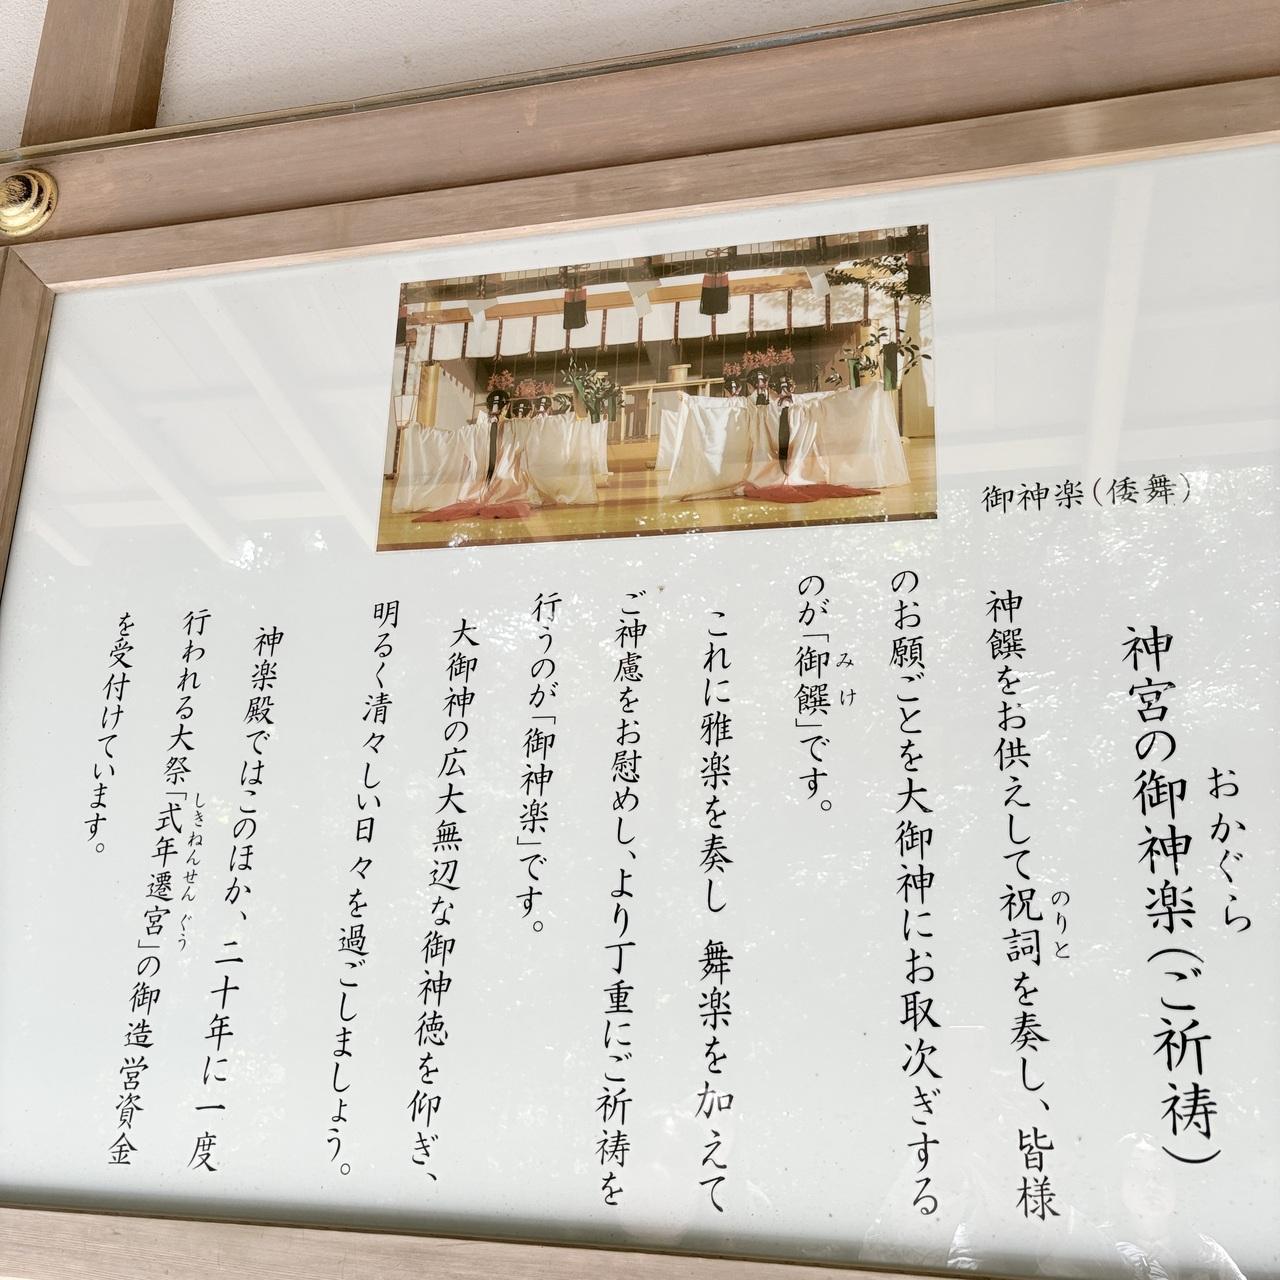 御神楽(倭舞)
おかぐら
神宮の御神楽(ご祈祷)
神饌をお供えして祝詞を奏し、皆様
のりと
のお願ごとを大御神にお取次ぎする
のが「御饌」です。
みけ
これに雅楽を奏し 舞楽を加えて
ご神慮をお慰めし、より丁重にご祈祷を
行うのが「御神楽」です。
大御神の広大無辺な御神徳を仰ぎ、
明るく清々しい日々を過ごしましょう。
神楽殿ではこのほか、二十年に一度
行われる大祭「式年遷宮」の御造営資金
しきねんせんぐう
を受付けています。